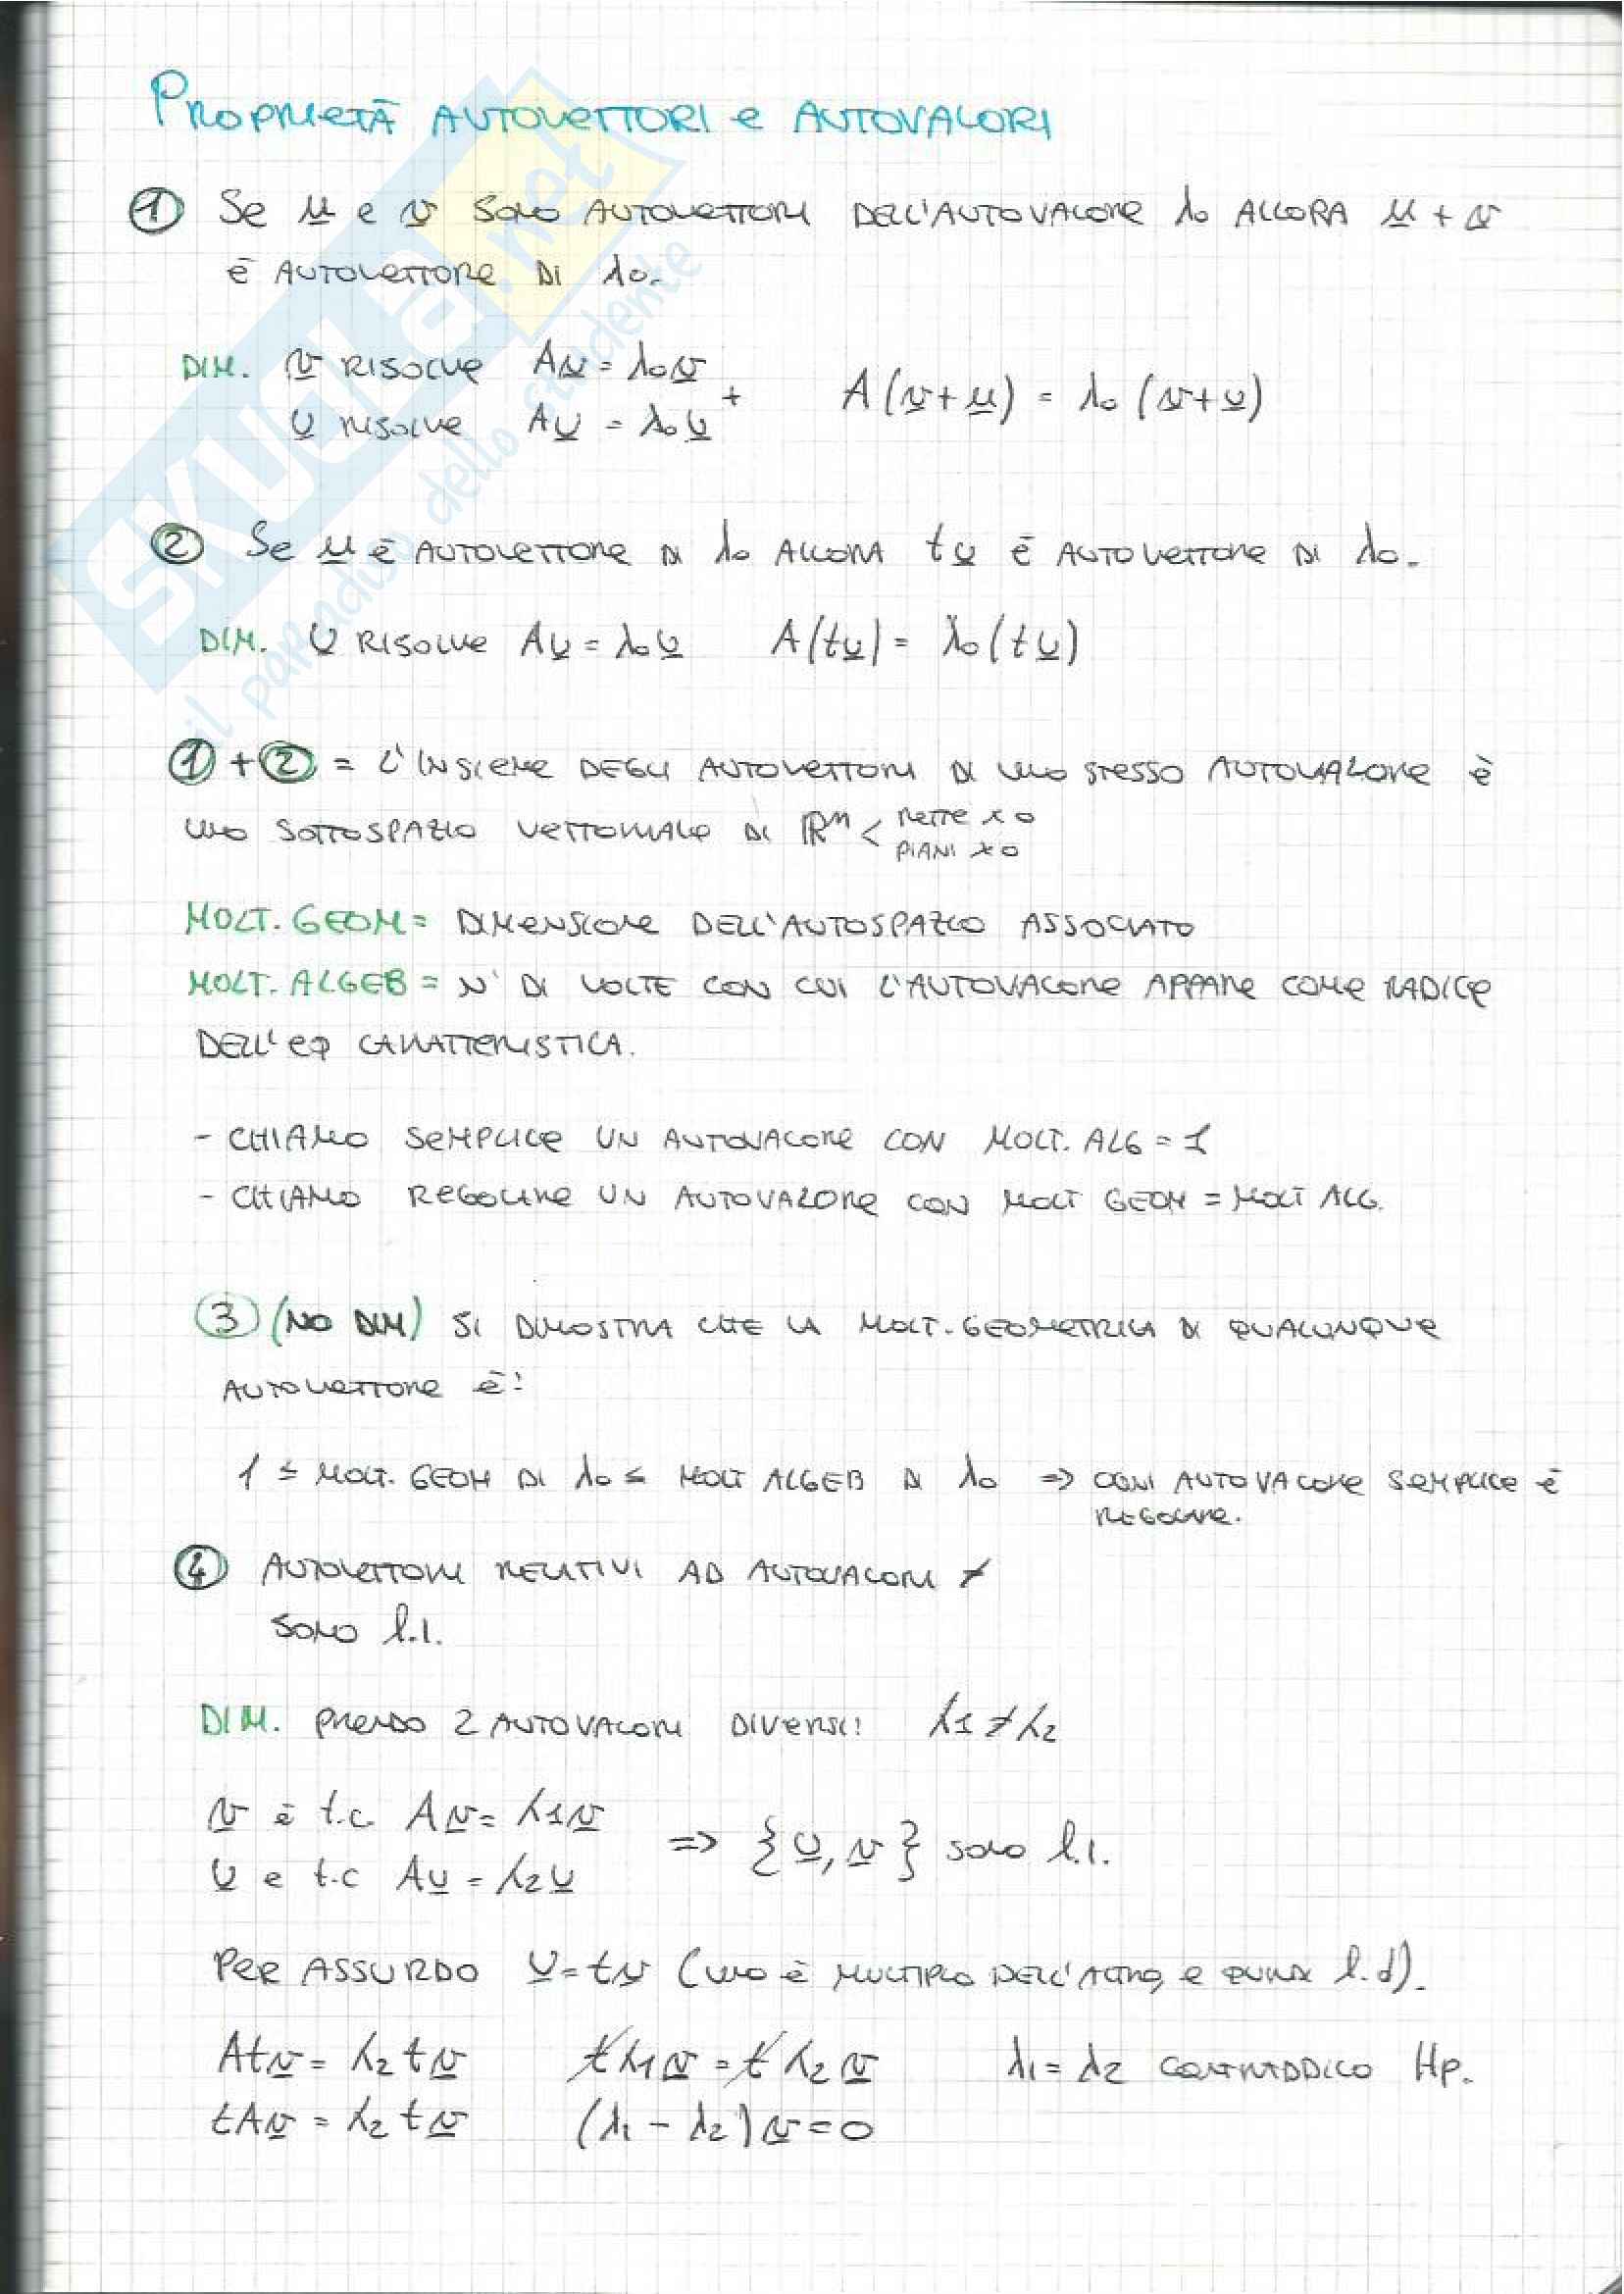 PROPRIETÀ AUTOVETTORI e AUTOVALORI
① Se u e v SONO AUTOVETTORI DELL'AUTOVALORE λ0 ALLORA u + v
è AUTOVETTORE DI λ0.
DIM. v RISOLVE Av = λ0v
+ A(v+u) = λ0 (v+u)
u RISOLVE Au = λ0u
② Se u è AUTOVETTORE DI λ0 ALLORA tu è AUTOVETTORE DI λ0.
DIM. u RISOLVE Au = λ0u A(tu) = λ0(tu)
①+② = L'INSIEME DEGLI AUTOVETTORI DI UNO STESSO AUTOVALORE è
UNO SOTTOSPAZIO VETTORIALE DI ℝⁿ < RETTE x 0
PIANI x 0
MOLT. GEOM = DIMENSIONE DELL'AUTOSPAZIO ASSOCIATO
MOLT. ALGEB = N° DI VOLTE CON CUI L'AUTOVALORE APPARE COME RADICE
DELL'EQ CARATTERISTICA.
- CHIAMO SEMPLICE UN AUTOVALORE CON MOLT. ALG = 1
- CHIAMO REGOLARE UN AUTOVALORE CON MOLT GEOM = MOLT ALG.
③ (NO DIM) SI DIMOSTRA CHE LA MOLT. GEOMETRICA DI QUALUNQUE
AUTOVETTORE è:
1 ≤ MOLT. GEOM DI λ0 ≤ MOLT ALGEB DI λ0 => OGNI AUTOVALORE SEMPLICE è
REGOLARE.
④ AUTOVETTORI RELATIVI AD AUTOVALORI ≠
SONO l.i.
DIM. PRENDO 2 AUTOVALORI DIVERSI: λ1 ≠ λ2
v è t.c. Av = λ1v
=> {u, v} SONO l.i.
u e t.c Au = λ2u
PER ASSURDO u = tv (UNO è MULTIPLO DELL'ALTRO, e QUINDI l.d).
Atv = λ2 tv tλ1v = tλ2v λ1 = λ2 CONTRADDICO Hp.
tAv = λ2 tv (λ1 - λ2)v = 0
SKUOLA.net
il paradiso dello studente